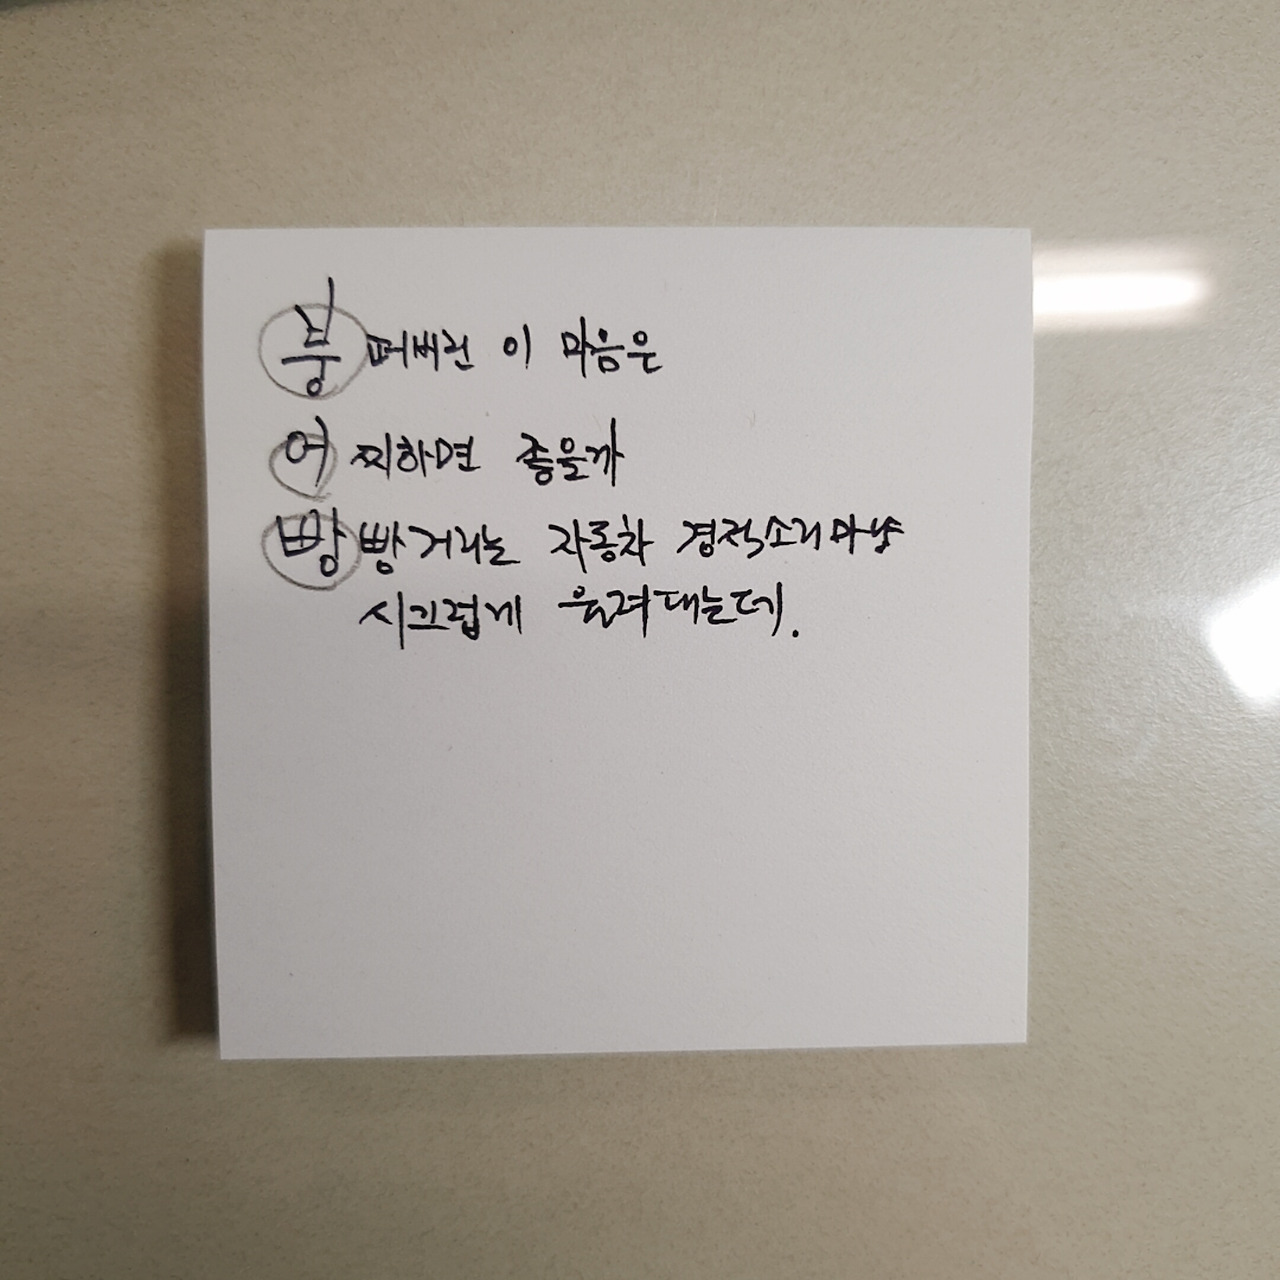 붕 퍼버린 이 마음은
어찌하면 좋을까
빵빵거리는 자동차 경적소리마냥
시끄럽게 울려대는데.